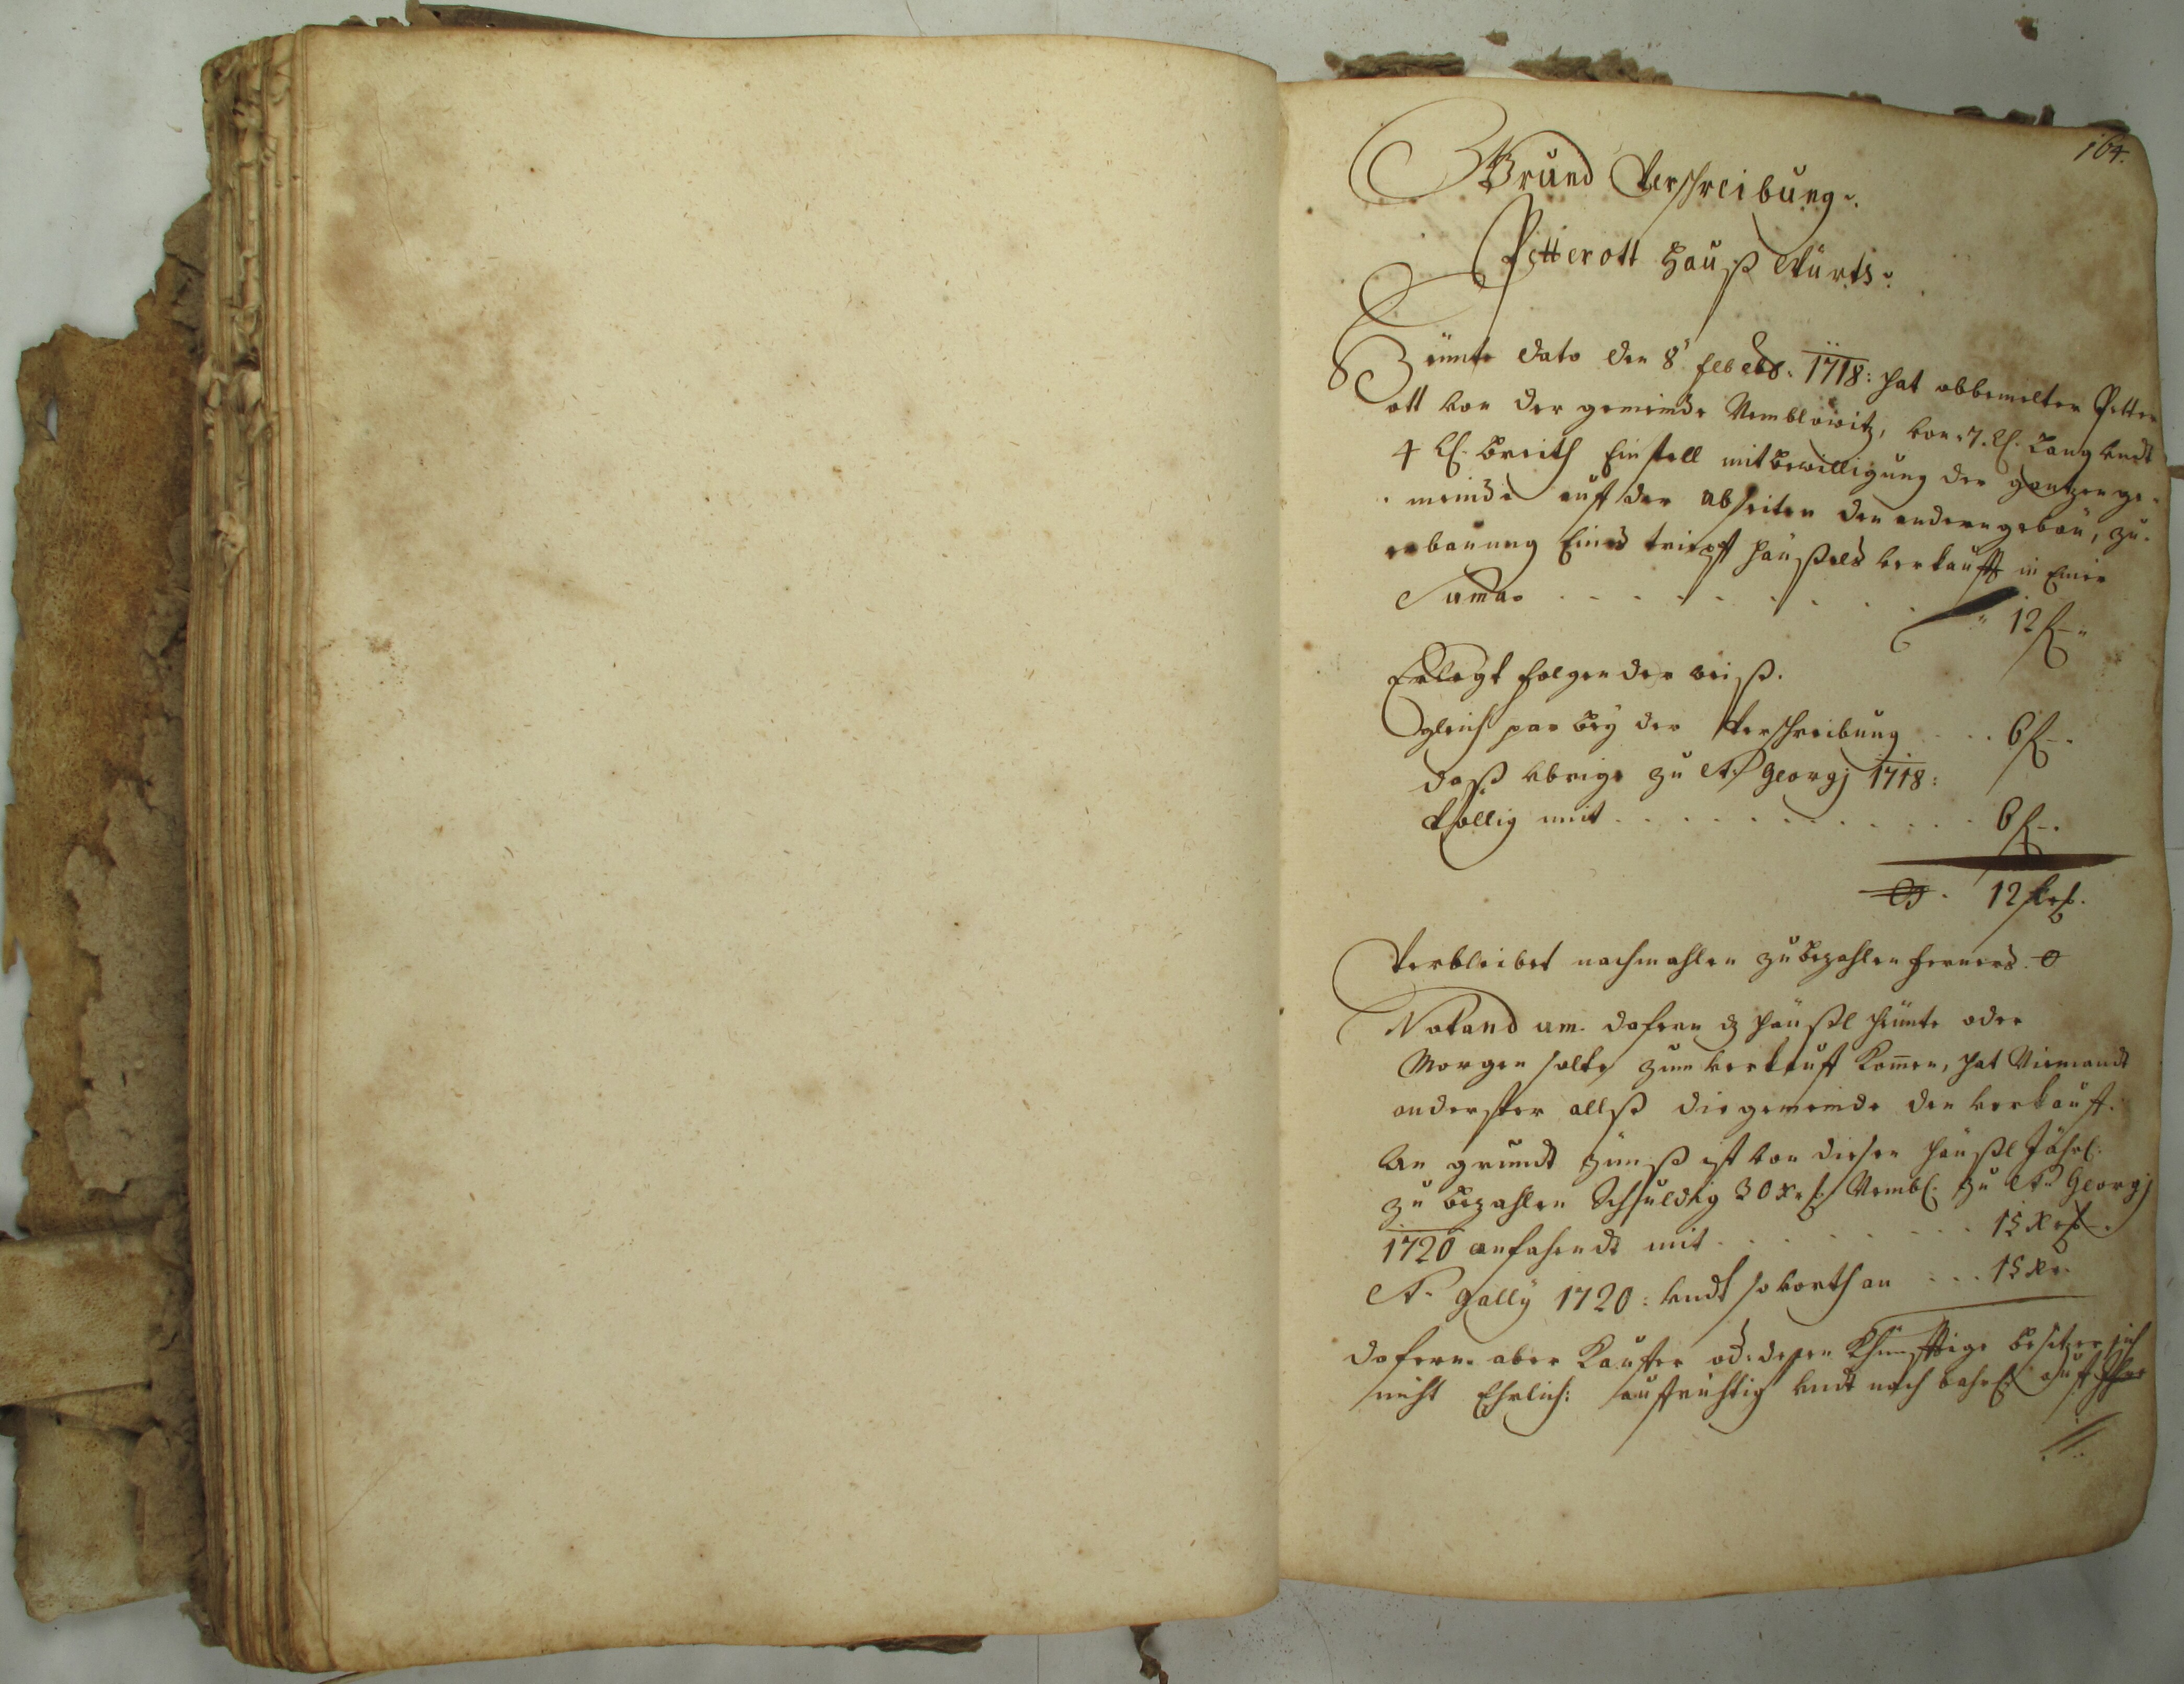 164.
Grund Verschreibung.
Petter ott Hauß Würts.
Heünte dato den 8t Feb 1718: hat obbemelter Petter
ott von der gemeinde Nemblowitz, von 7. Kl. Lang undt
4 Kl. breith Ein stell mit bewilligung der gantzen ge-
meinde auff der abseiten den andern gebäu, zu
erbauung Eines häußels verkaufft in Einer
Suma 12 f
Erlegt folgender weiß.
gleich par beÿ der Verschreibung 6 f
daß übrige zu St Georgj 1718:
Vollig mit 6 f
12 f
Verbleibet nachmahlen zu bezahlen ferners. 0
Notandum. dafern dz häußl heünte oder
Morgen solte zum verkauff Kom̄en, hat Niemandt
anderster allß die gemeinde den verkauff.
An grundt Zünß ist von diesen häußl Jährl:
zu bezahlen Schuldig 30 xr Nembl. zu St Georgj
1720 anfahendt mit 15 xr
St. Gally 1720: undt so vorth an 15 xr.
dafern aber Kauffer od: deßen Khünfftige besitzer sich
nicht Ehrlich: auffrichtig undt nach bahrl: